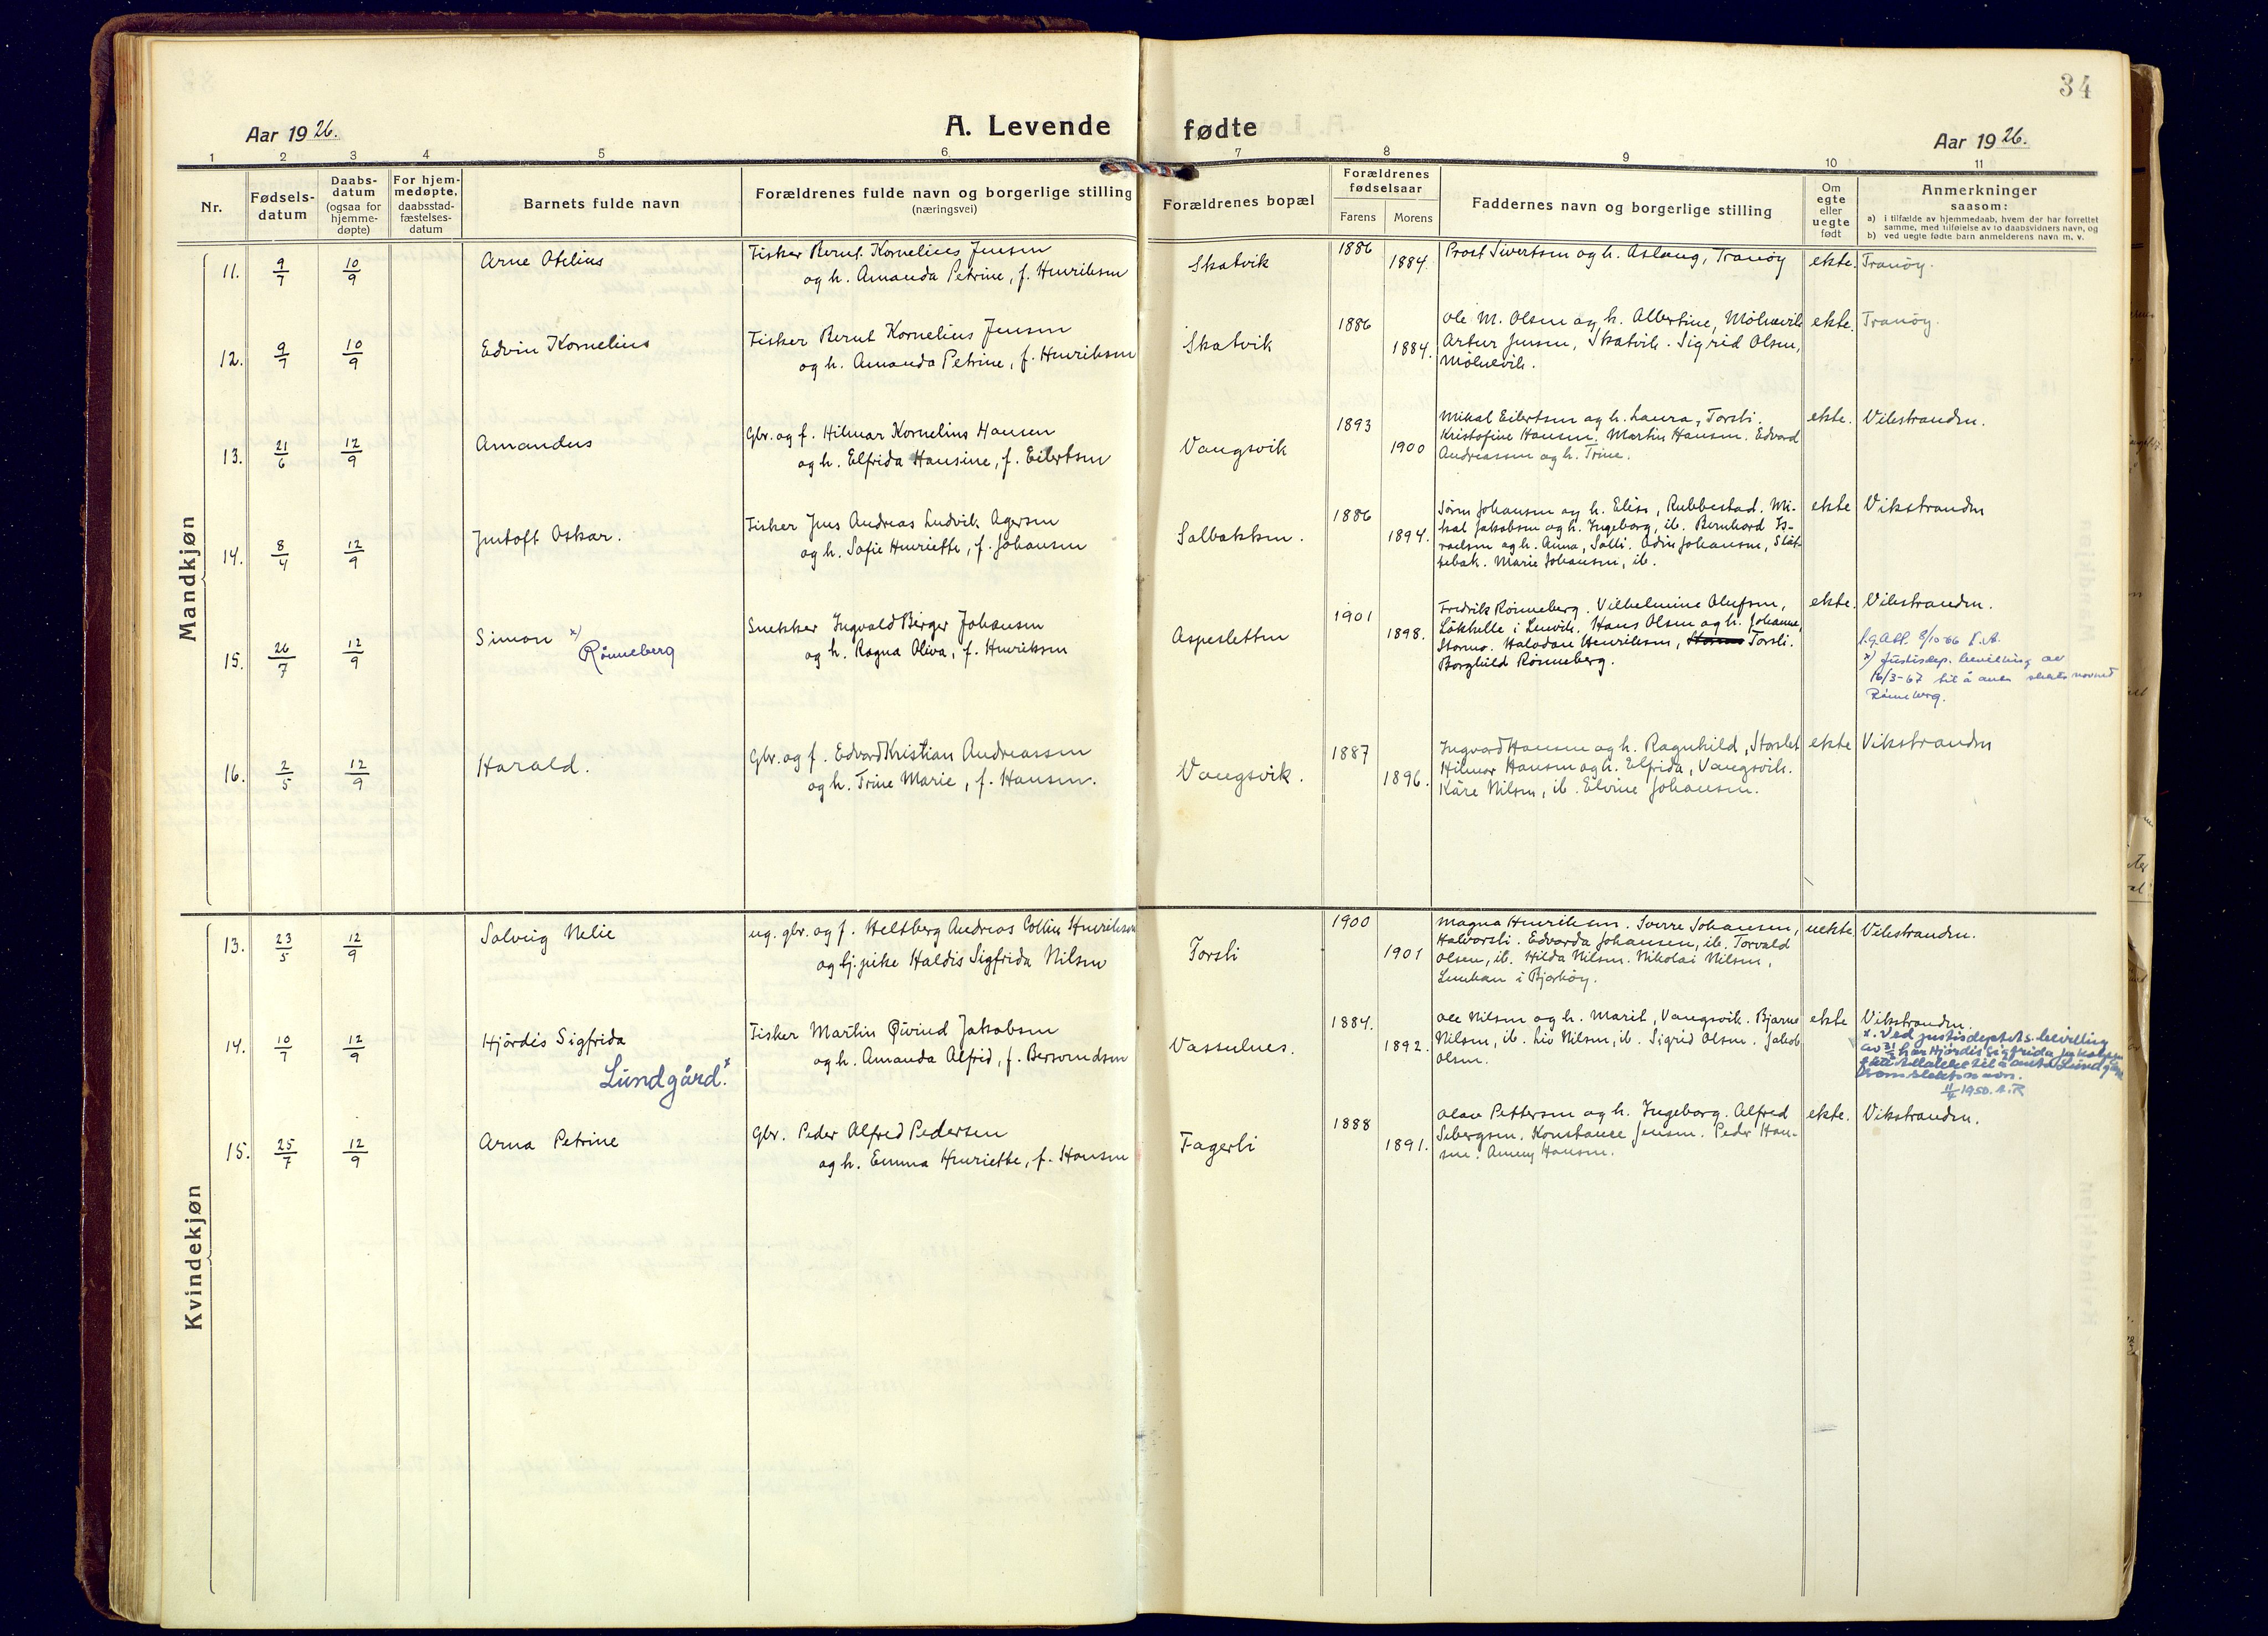 34
Aar 1926.
A. Levende fødte
Aar 1926.
1 2 3 4 5 6 7 8 9 10 11
Nr.
Fødsels-
datum
Daabs-
datum
(ogsaa for
hjemme-
døpte)
For hjem-
medøpte,
daabsstad-
fæstelses-
datum
Barnets fulde navn
Forældrenes fulde navn og borgerlige stilling
(næringsvei)
Forældrenes bopæl
Forældrenes
fødselsaar
Farens Morens
Faddernes navn og borgerlige stilling
Om
egte
eller
uegte
født
Anmerkninger
saasom:
a) i tilfælde av hjemmedaab, hvem der har forrettet
samme, med tilføielse av to daabsvidners navn, og
b) ved uegte fødte barn anmelderens navn m. v.
Mandkjøn
11. 9/7 10/9 Arne Otilius
Fisker Bernt Kornelius Jensen
og h. Amanda Petrine, f. Henriksen
Skatvik
1886
1884.
Prost Sivertsen og h. Aslaug, Tranöy
ekte. Tranöy.
12. 9/7 10/9 Edvin Kornelius
Fisker Bernt Kornelius Jensen
og h. Amanda Petrine, f. Henriksen
Skatvik
1886
1884.
Ole M. Olsen og h. Albertine, Mölnevik
Artur Jensen, Skatvik. Sigrid Olsen,
Mölnevik.
ekte. Tranöy.
13. 21/6 12/9 Amandus
Gbr. og f. Hilmar Kornelius Hansen
og h. Elfrida Hansine, f. Eilertsen
Vangsvik
1893
1900
Mikal Eilertsen og h. Laura, Torsli.
Kristofine Hansen. Martin Hansen. Edvard
Andreassen og h. Trine.
ekte. Vikstranden.
14. 8/4 12/9 Jentoft Oskar.
Fisker Jens Andreas Ludvik Agersen
og h. Sofie Henriette, f. Johansen
Solbakken.
1886
1894.
Sören Johansen og h. Elise, Rubbestad. Mi-
kal Jakobsen og h. Ingeborg, ib. Bernhard Is-
raelsen og h. Anna, Solli. Odin Johansen, Slät-
tebak. Marie Johansen, ib.
ekte Vikstranden
15. 26/7 12/9 Simon x) Rönneberg
Snekker Ingvald Birger Johansen
og h. Ragna Oliva, f. Henriksen
Aspesletten
1901
1898.
Fredrik Rönneberg. Vilhelmine Olufsen,
Lökhelle i Lenvik. Hans Olsen og h. Johanne,
Stormo. Halvdan Henriksen, Torsli.
Borghild Rönneberg.
ekte. Vikstranden.
8/10-66
x) Justisdep. bevilling av
16/3-67 til å anta slektsnavnet
Rönneberg.
16. 2/5 12/9 Harald.
Gbr. og f. Edvard Kristian Andreassen
og h. Trine Marie, f. Hansen.
Vangsvik.
1887
1896.
Ingvard Hansen og h. Ragnhild, Storslet
Hilmar Hansen og h. Elfrida, Vangsvik.
Käre Nilsen, ib. Elvine Johansen.
ekte Vikstranden
Kvindekjøn
13. 23/5 12/9 Solveig Nelie
ug. gbr. og f. Heltberg Andreas Collin Henriksen
og tj. pike Haldis Sigfrida Nilsen
Torsli
1900
1901
Magna Henriksen. Sverre Johansen,
Halvorsli. Edvarda Johansen, ib. Torvald
Olsen, ib. Hilda Nilsen. Nikolai Nilsen,
Lenkan i Bjarköy.
uekte Vikstranden.
14. 10/7 12/9 Hjördis Sigfrida
Lundgård.x
Fisker Martin Øivind Jakobsen
og h. Amanda Alfrid, f. Bersvendsen
Vasselnes.
1884.
1892.
Ole Nilsen og h. Marit, Vangsvik. Bjarne
Nilsen, ib. Liv Nilsen, ib. Sigrid Olsen. Jakob
Olsen.
ekte Vikstranden.
x. Ved justisdeptets bevilling
av har Hjördis Sigfrida Jakobsen
fått tillatelse til å anta Lundgård
som slektsnavn.
1950.
15. 25/7 12/9 Arna Petrine
Gbr. Peder Alfred Pedersen
og h. Emma Henriette, f. Hansen
Fagerli
1888
1891.
Olav Pettersen og h. Ingeborg. Alfred
Sebergsen. Konstance Jensen. Peder Han-
sen. Anny Hansen.
ekte. Vikstranden.